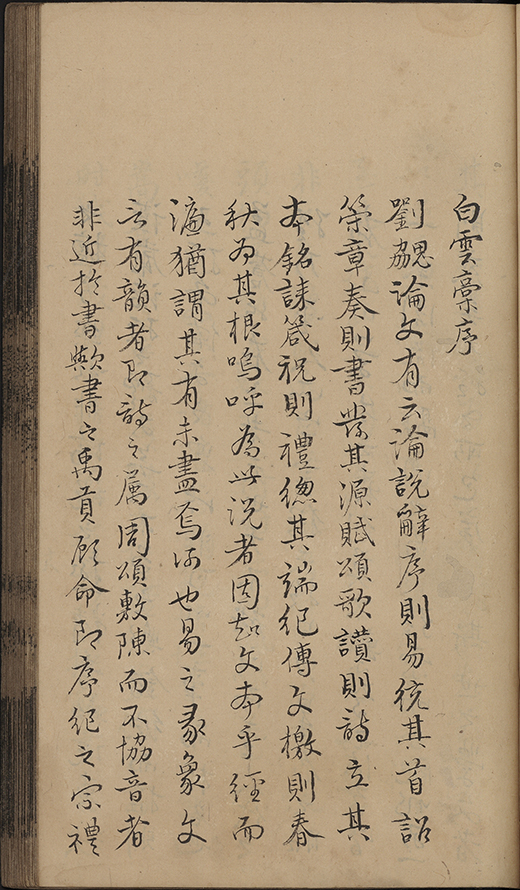 白雲藁序
劉勰論文有云論說辭序則易統其首詔
策章奏則書發其源賦頌歌讚則詩立其
本銘誄箴祝則禮總其端紀傳文檄則春
秋為其根嗚呼為此說者固知文本乎經而
濂猶謂其有未盡焉何也易之彖象文
言有韻者即詩之属周頌敷陳而不協音者
非近於書歟書之禹貢顧命即序紀之宗禮